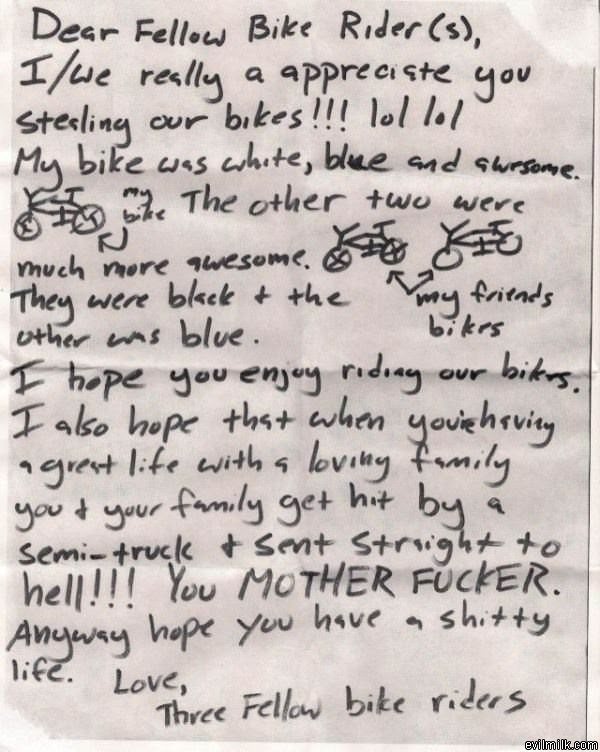 Dear Fellow Bike Rider(s),
I/we really a appreciate you
stealing our bikes!!! lol lol
My bike was white, blue and awesome.
my bike The other two were
much more awesome.
They were black + the my friends
other was blue. bikes
I hope you enjoy riding our bikes.
I also hope that when you're having
a great life with a loving family
you & your family get hit by a
semi-truck & sent straight to
hell!!! You MOTHER FUCKER.
Anyway hope you have a shitty
life. Love,
Three Fellow bike riders
evilmilk.com